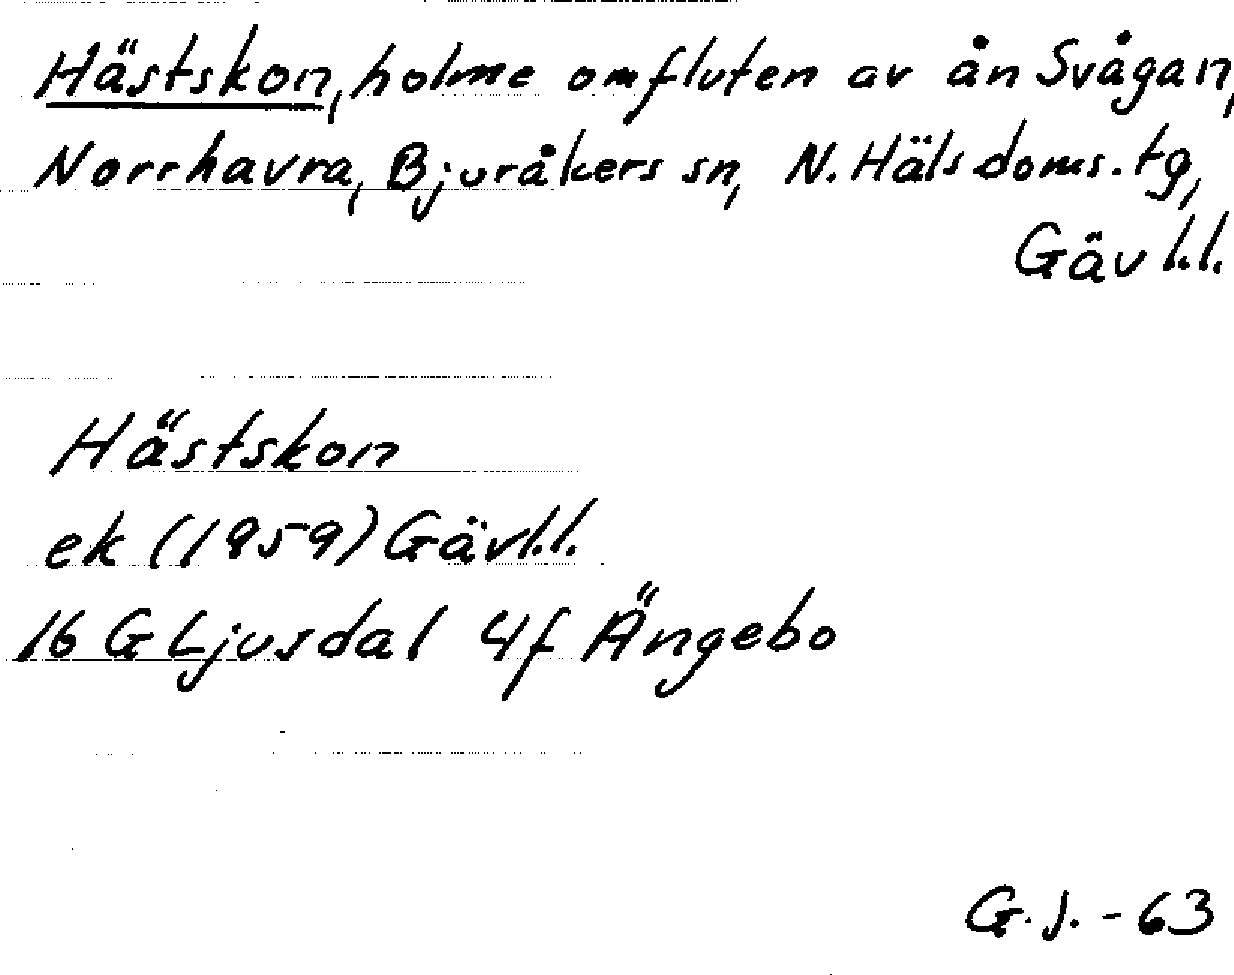 Hästskon, holme omfluten av ån Svågan,
Norrhavra, Bjuråkers sn, N. Häls doms. tg,
Gäv l.l.
Hästskon
ek (1959) Gävl.l.
16 G Ljusdal 4f Ängebo
G.J. - 63